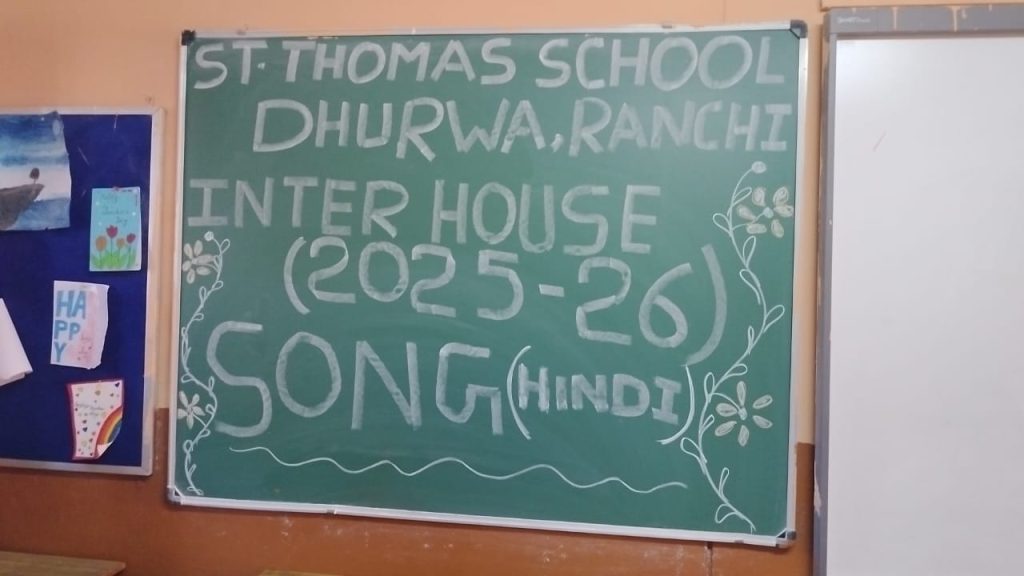 ST. THOMAS SCHOOL
DHURWA, RANCHI
INTER HOUSE
(2025-26)
SONG (HINDI)
HA
PP
Y